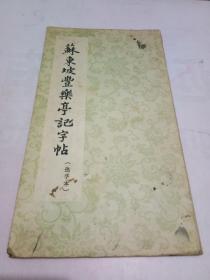 蘇東坡豐樂亭記字帖
（選字本）